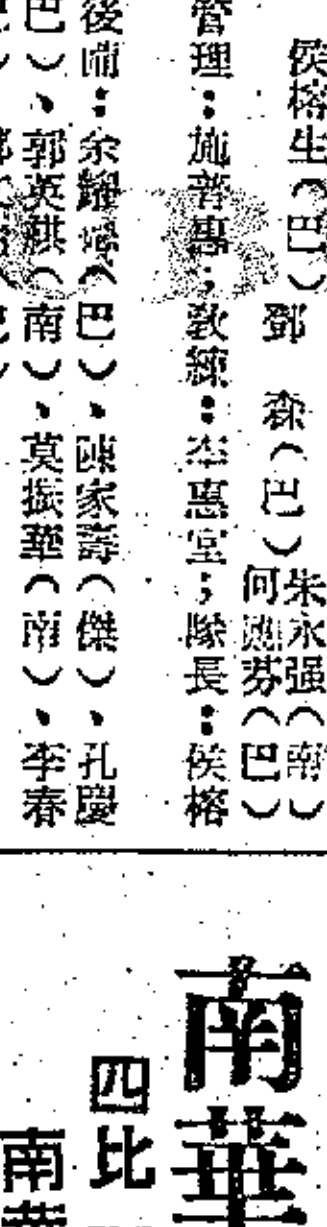 侯榕生（巴）　鄧　森（巴）朱永强（南）
何　芬（巴）
管理：施普惠；敎練：李惠堂；隊長：侯榕
後　：余耀　（巴）、陳家壽（傑）、孔慶
巴）、郭英祺（南）、莫振華（南）、李春
南華
四比
南華